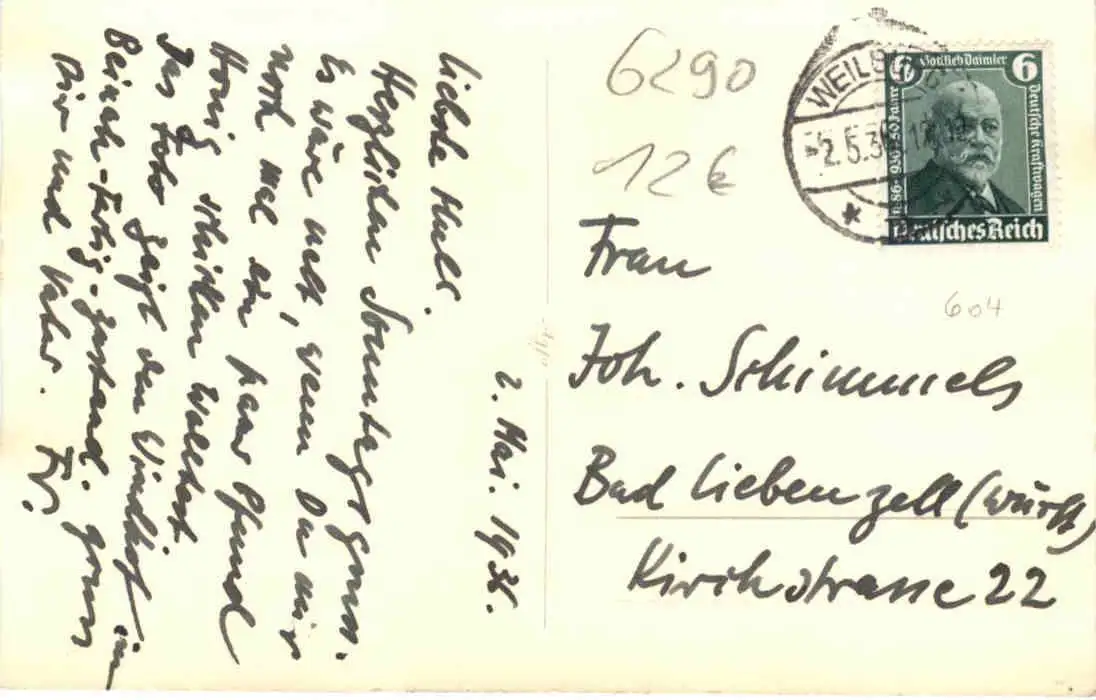 2. Mai. 1936.
Liebste Mull.
Herzlichen Sonntagsgruss.
Es wäre nett, wenn Du mir
noch mal ein paar Pfund
Honig schicken wolltest
Das Foto zeigt den Windhof im
Beinah-Fertig-Zustand. Gruss
Dir und Vater.
6290
12 €
WEILBURG
-2.5.36.17
6 Gottlieb Daimler 6
1886-1936 50 Jahre
Deutsche Kraftwagen
Deutsches Reich
604
Frau
Joh. Schimmels
Bad Liebenzell (Württ)
Kirchstrasse 22